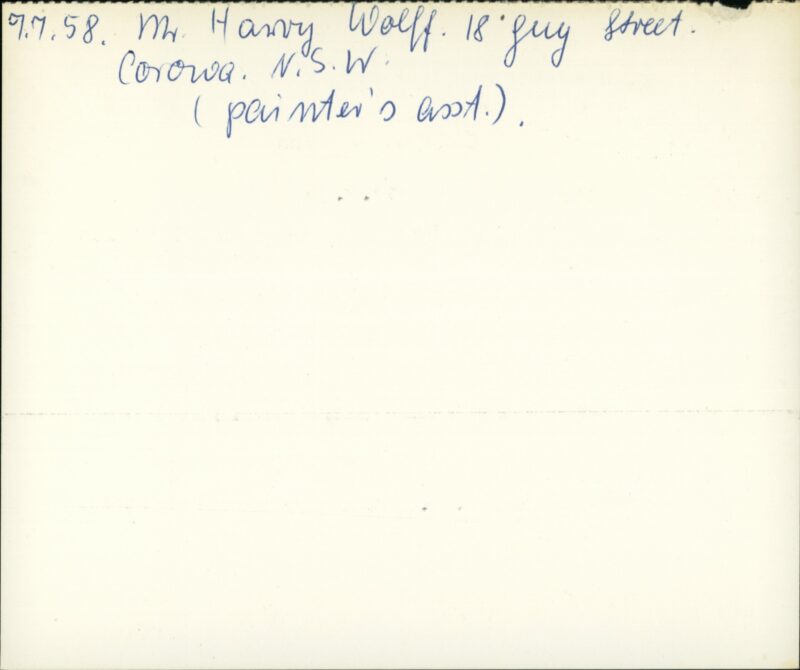 7.7.58. Mr. Harry Wolff. 18 Guy Street.
Corowa. N.S.W.
(painter's asst.).